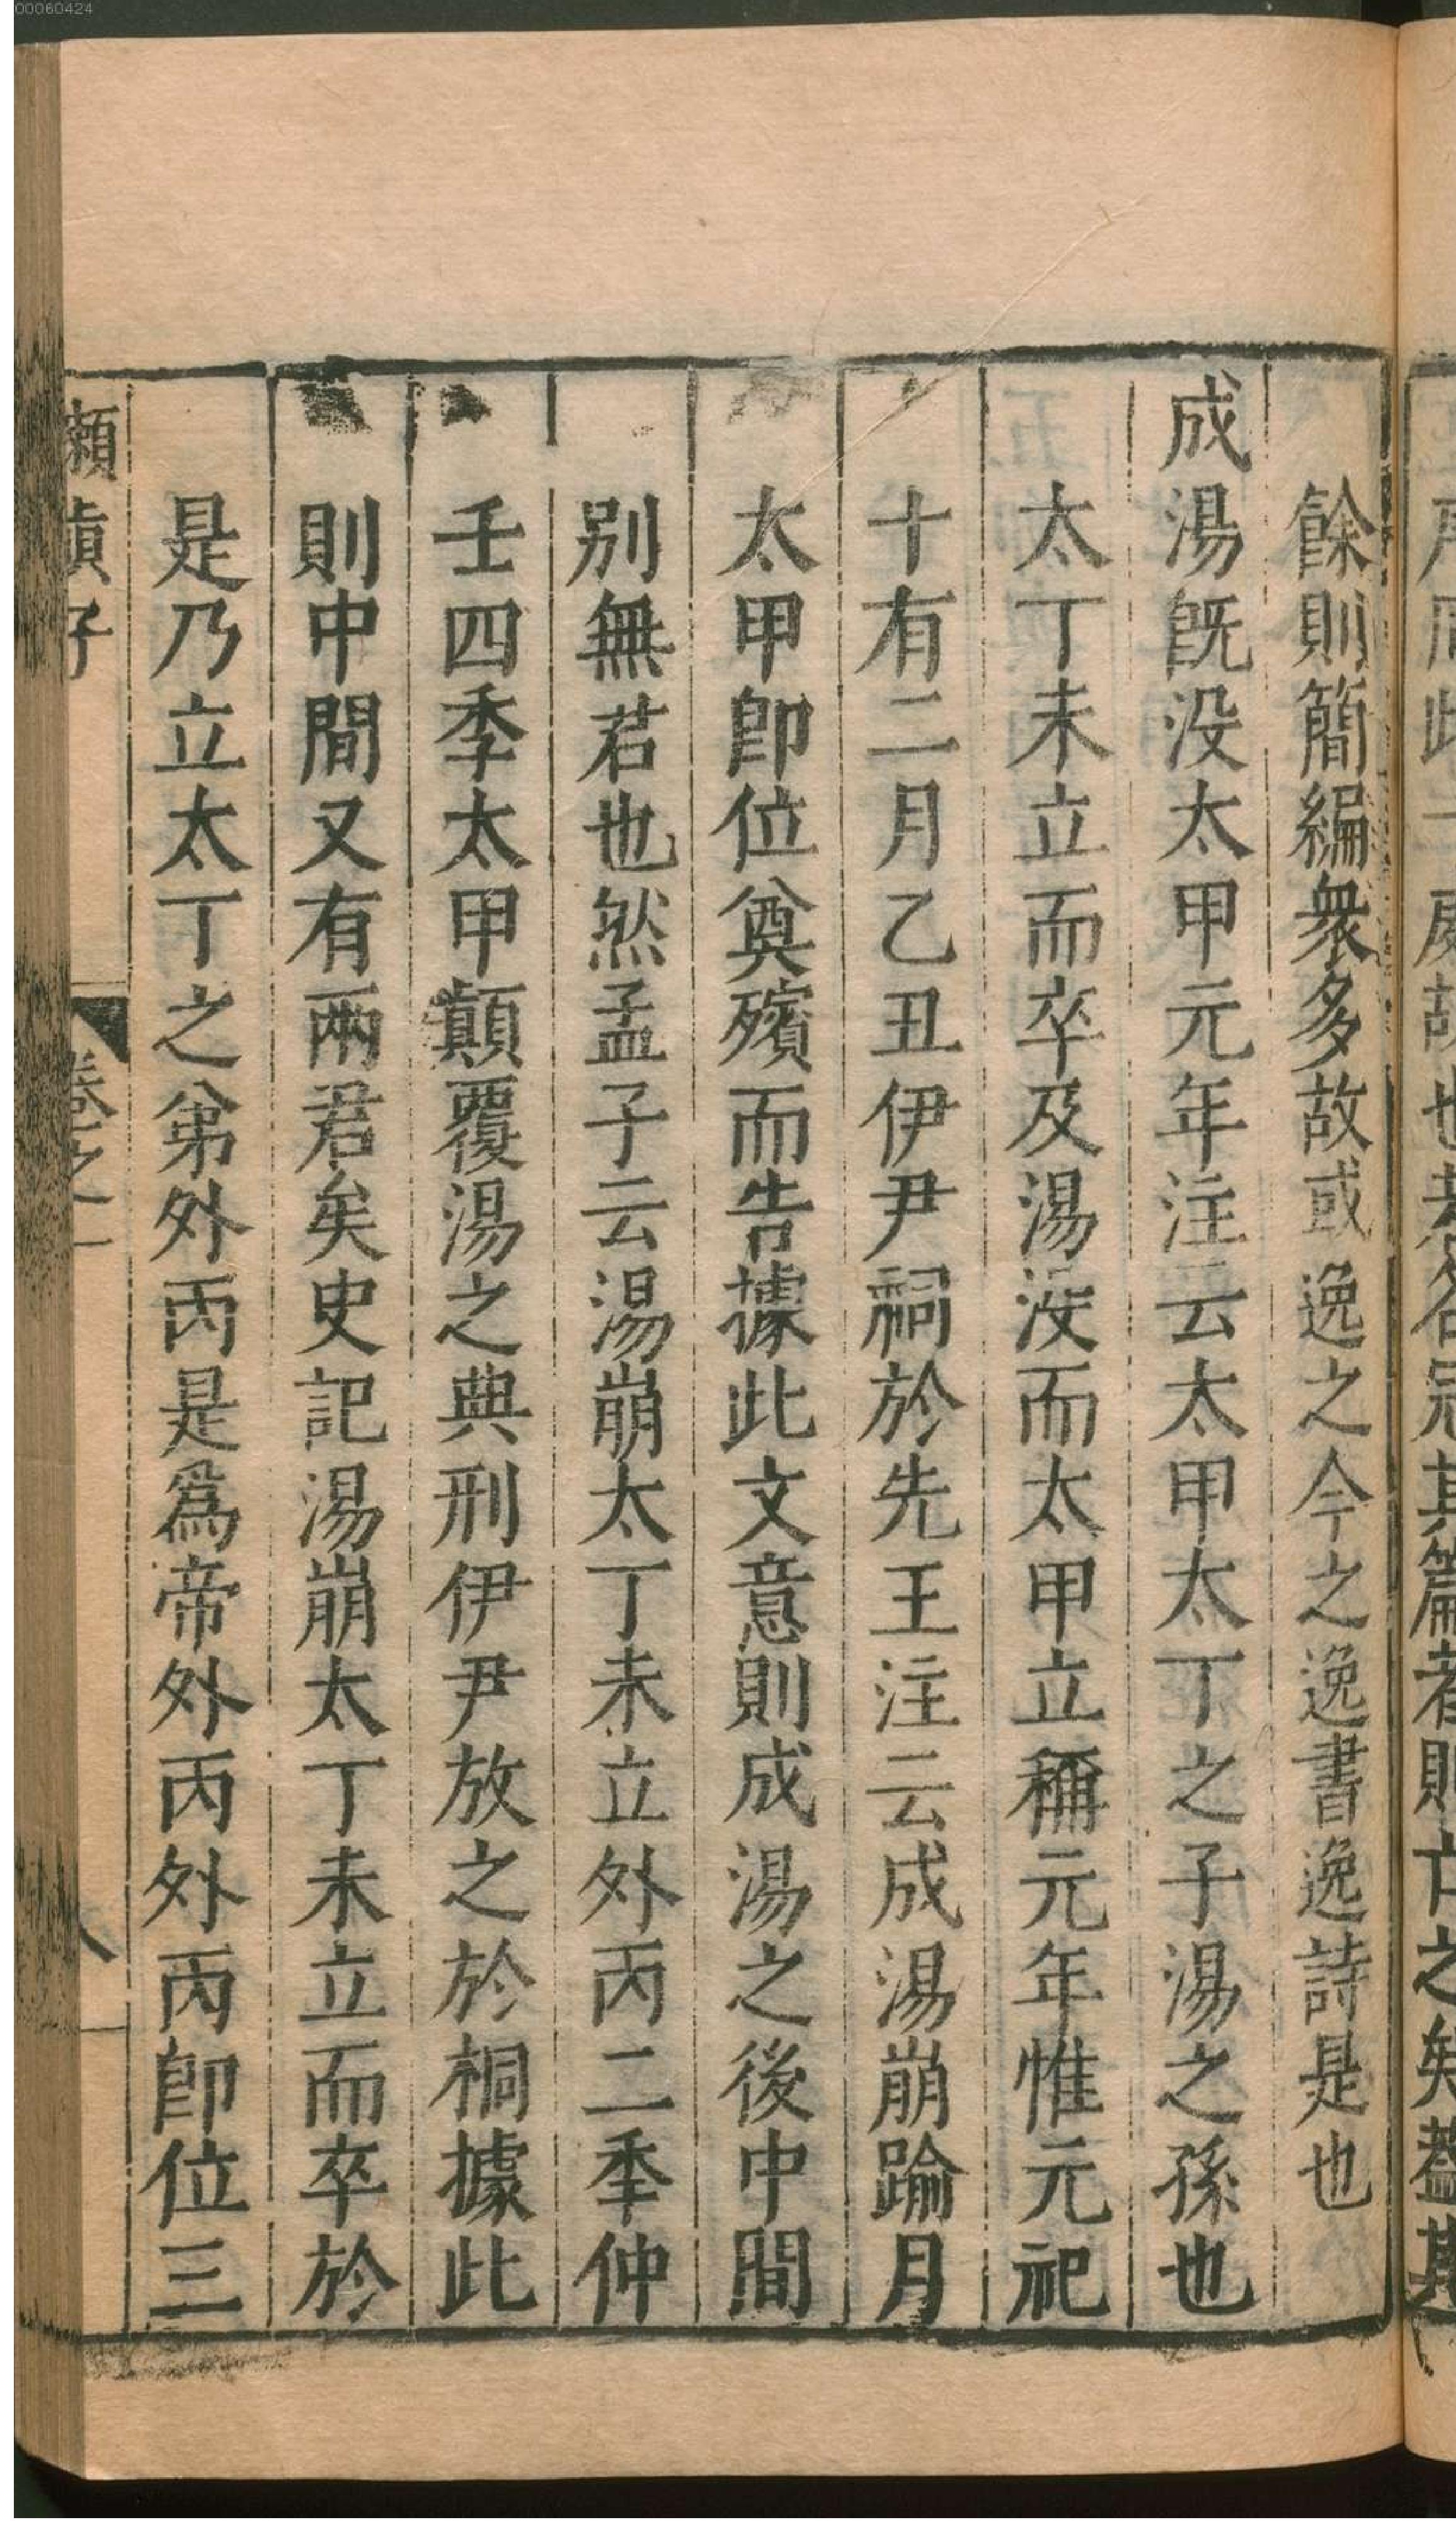 00060424
餘則簡編衆多故或逸之今之逸書逸詩是也
成湯旣没太甲元年注云太甲太丁之子湯之孫也
太丁未立而卒及湯没而太甲立稱元年惟元祀
十有二月乙丑伊尹祠於先王注云成湯崩踰月
太甲卽位奠殯而告據此文意則成湯之後中間
别無君也然孟子云湯崩太丁未立外丙二季仲
壬四季太甲顛覆湯之典刑伊尹放之於桐據此
則中間又有兩君矣史記湯崩太丁未立而卒於
是乃立太丁之弟外丙是爲帝外丙外丙卽位三
嬾真子
卷之一
八